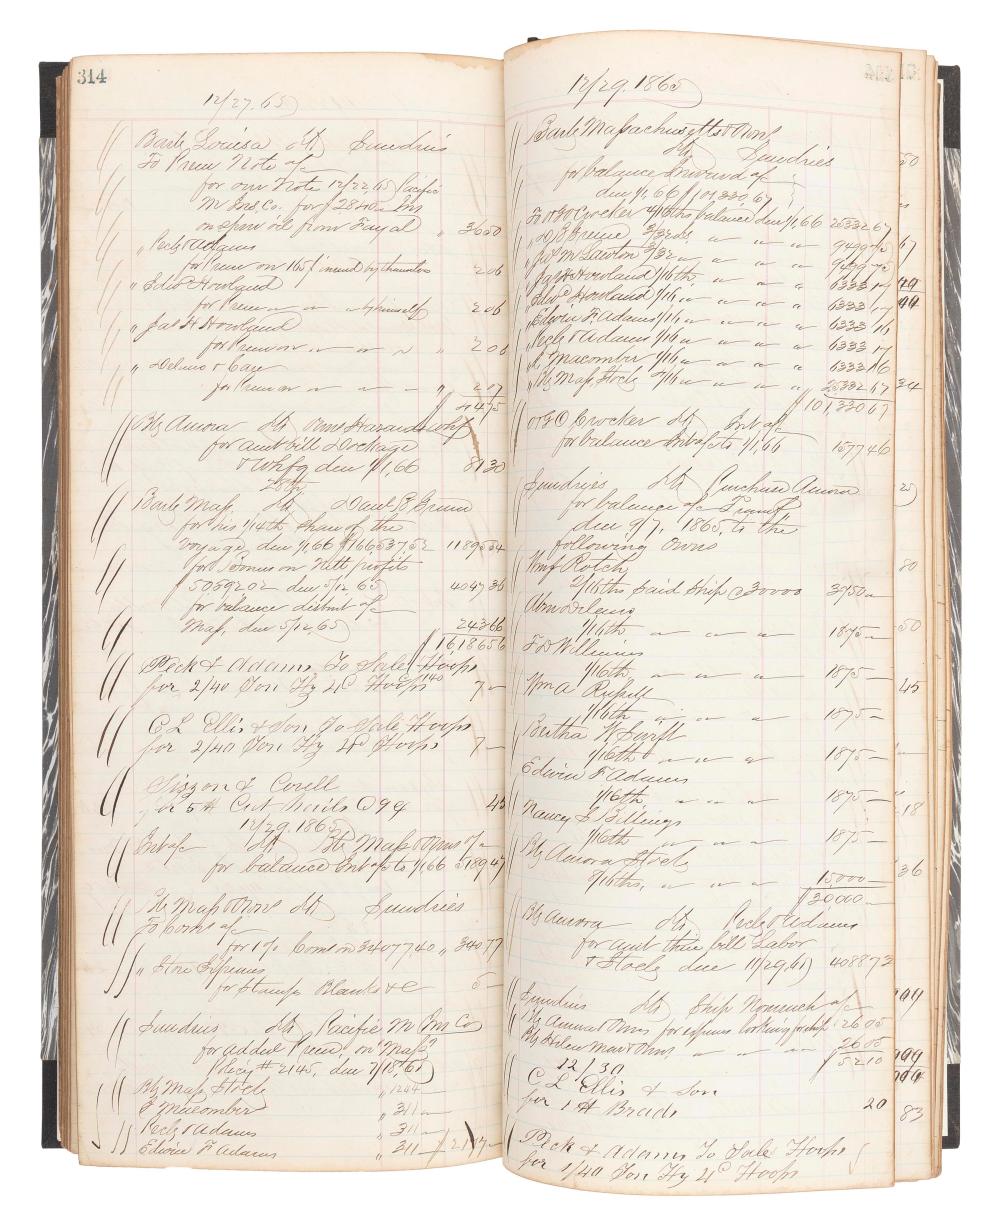 314
12/27.65
Bark Louisa Dr Sundries
To Prem Note a/c
for our Note 12/22.65 Pacific
M Ins. Co. for $2840 Ins
on sperm oil from Fayal " 3650
" Peck & Adams
for Prem on 165/ insured by 206
" Edwd Howland
for Prem " " " " himself 206
" Jas H Howland
for Prem " " " " " 206
" Delano & Co
for Prem " " " " " 207
4475
Bk Aurora Dr Wm Hazard whf
for amt bill Dockage
& Whfg due 1/1,66 8130
28th
Bark Mass. Dr Danl B Greene
for his 1/14th share of the
voyage, due 1/1,66 $166537.52 1189554
for Bonus on Nett profits
50592.02 due 5/12 65 404736
for balance distrbt a/c
Mass, due 5/12,65 24366
1618656
Peck & Adams To Sale Hoops
for 2/40 Ton Hy 4C Hoops 140 7 –
C. L. Ellis & Son To Sale Hoops
for 2/40 Ton Hy 4C Hoops 7 –
Sisson &
for 5 # Cut Nails @ 9¢ 45
12/29.1865
Int a/c Dr Bk Mass & Owns
for balance Int a/c to 1/1,66 518947
Bk Mass & Owns Dr Sundries
To Coms a/c
for 1% Coms on 340774.0 " 34077
" Store Expenses
for Stamps Blanks &c 5 –
Sundries Dr Pacific M Ins Co
for added Prem on "Mass"
Policy # 2145, due 7/18 65
Bk Mass Stock " 1244 –
E Macomber " 311 –
Peck & Adams " 311 –
Edwin F Adams " 311 –
12/29.1865
Bark Massachusetts & Owns
Dr Sundries
for balance Inward a/c
due 1/1,66 $101330.67
To O & GO Crocker 4/16ths balance due 1/1,66 2533267
" D B Greene 3/32ds, " " " 949975
" M Lawton 3/32 " " " " 949975
" Jas H Howland 1/16th, " " " 633317
" Edwd Howland 1/16 " " " " 633317
" Edwin F. Adams 1/16 " " " " 633316
" Peck & Adams 1/16 " " " " 633317
" E Macomber 1/16 " " " " 633316
" Bk Mass, Stock 4/16 " " " " 2533267
10133067
O & GO Crocker Dr Int a/c
for balance Int a/c to 1/1,66 157746
Sundries Dr Purchase Aurora
for balance a/c Transf
due 9/7, 1865, to the
following Owns
Wm J Rotch
2/16ths said Ship @ 30000 3750 –
Abm Delano
1/16th " " " 1875 –
F D Williams
1/16th " " " 1875 –
Wm A Russell
1/16th " " " 1875 –
Bertha W Swift
1/16th " " " 1875 –
Edwin F Adams
1/16th " " " 1875 –
Nancy S Billings
1/16th " " " 1875 –
Bk Aurora Stock
8/16ths, " " " 15000 –
30000 –
Bk Aurora Dr Peck & Adams
for amt their bill Labor
& Stock due 11/29,65 408873
Sundries Dr Ship a/c
Bk Aurora & Owns for expense looking for ship 2605
Bk Helen Mar & Owns " " " 2605
5210
12/30
C L Ellis & Son
for 1 # Brads 20
Peck & Adams To Sale Hoops
for 1/40 Ton Hy 4C Hoops